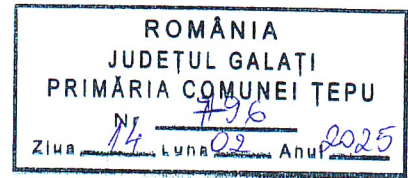 ROMÂNIA
JUDEȚUL GALAȚI
PRIMĂRIA COMUNEI ȚEPU
Nr 796
Ziua 14 Luna 02 Anul 2025